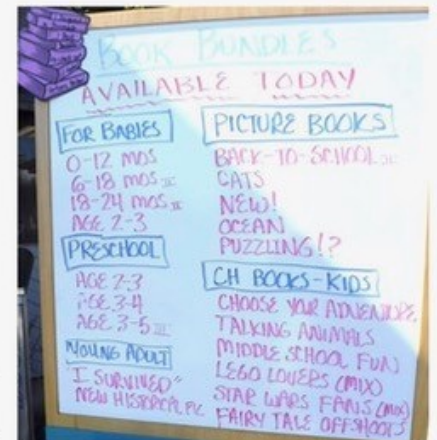 BOOK BUNDLES
AVAILABLE TODAY
FOR BABIES
0-12 MOS
6-18 MOS II
18-24 MOS II
AGE 2-3
PRESCHOOL
AGE 2-3
AGE 3-4
AGE 3-5 III
YOUNG ADULT
"I SURVIVED"
NEW HISTORICAL FIC
PICTURE BOOKS
BACK-TO-SCHOOL II
CATS
NEW!
OCEAN
PUZZLING!?
CH BOOKS-KIDS
CHOOSE YOUR ADVENTURE
TALKING ANIMALS
MIDDLE SCHOOL FUN
LEGO LOVERS (MIX)
STAR WARS FANS (MIX)
FAIRY TALE OFFSHOOTS